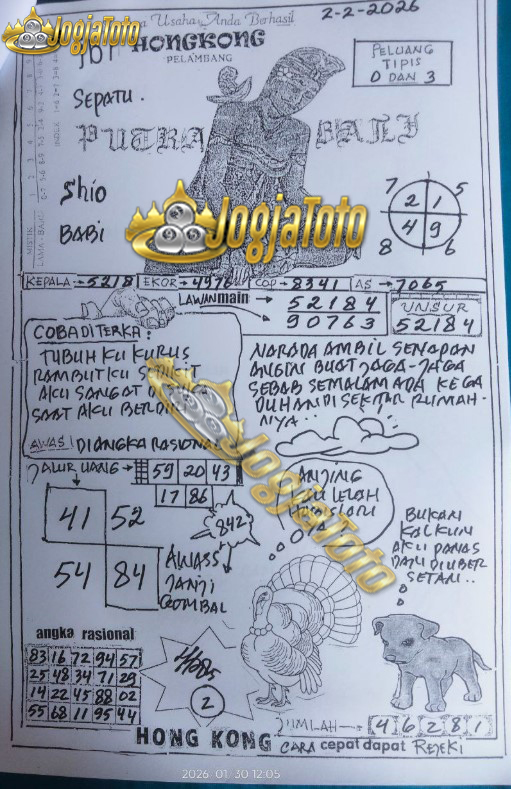 Usaha Anda Berhasil
2-2-2026
JogjaToto
HONGKONG
PELAMBANG
PELUANG
TIPIS
0 DAN 3
SEPATU.
PUTRA BALI
SHIO
BABI
7 5
2 1
4 9
8 6
JogjaToto
KEPALA→5218 EKOR→4976 COP→8341 AS→7065
LAWAN main → 52184
90763
UNSUR
52184
COBA DI TERKA:
TUBUH KU KURUS
RAMBUT KU
AKU SANGAT
SAAT AKU
AWAS! DI ANGKA RASIONAL
NARADA AMBIL SENAPAN
ANGIN BUAT JAGA-JAGA
SEBAB SEMALAM ADA KEGA
DUHAN DI SEKITAR RUMAH-
NYA...
JALUR UANG → 59 20 43
17 86
41 52
54 84
842
AWASS
JANJI
GOMBAL
JogjaToto
ANJING
LELAH
BUKAN
KALKUN
AKU PANAS
DIUBER
SETAN..
angka rasional
83 16 72 94 57
25 48 34 71 29
14 22 45 88 02
55 68 11 95 44
2
JUMLAH → 4 6 2 8 1
HONG KONG CARA cepat dapat REJEKI
2026-01-30 12:05